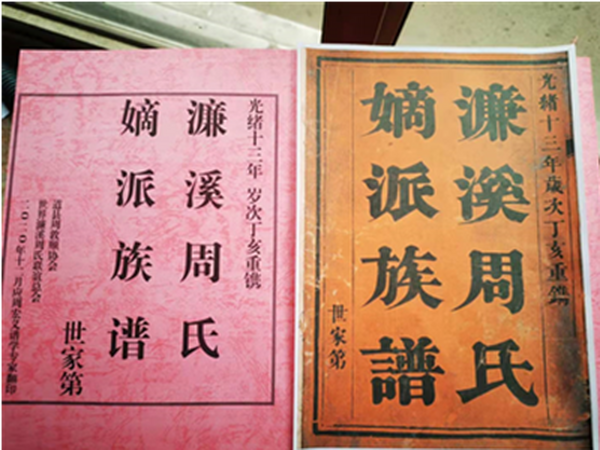 光绪十三年 岁次丁亥重镌
濂溪周氏
嫡派族谱
世家第
道县周敦颐协会
世界濂溪周氏联谊总会
二〇二〇年十一月应周宏文谱学专家翻印
光緒十三年歲次丁亥重鐫
濂溪周氏
嫡派族譜
世家第